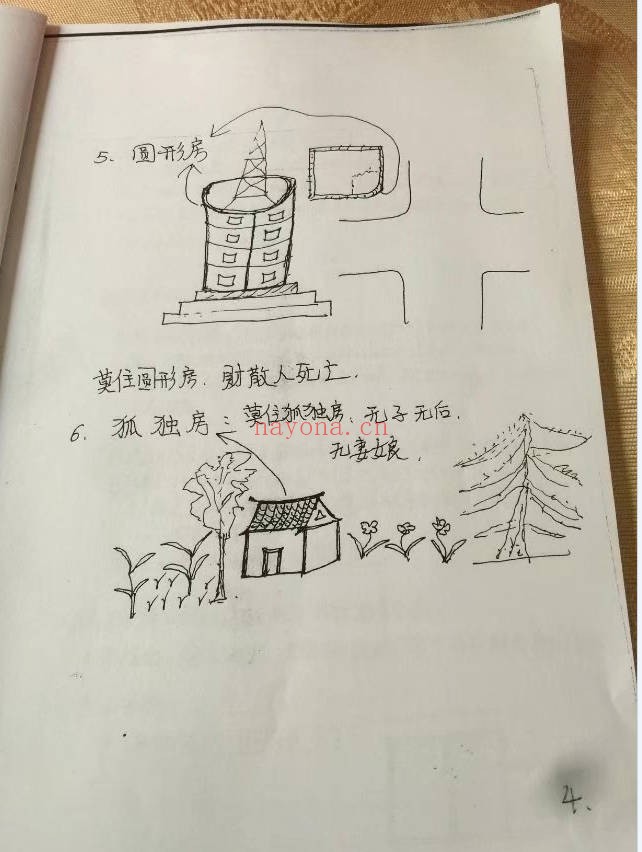 5. 圆形房
莫住圆形房. 财散人死亡.
6. 孤独房: 莫住孤独房, 无子无后.
无妻娘.
nayona.cn
4.